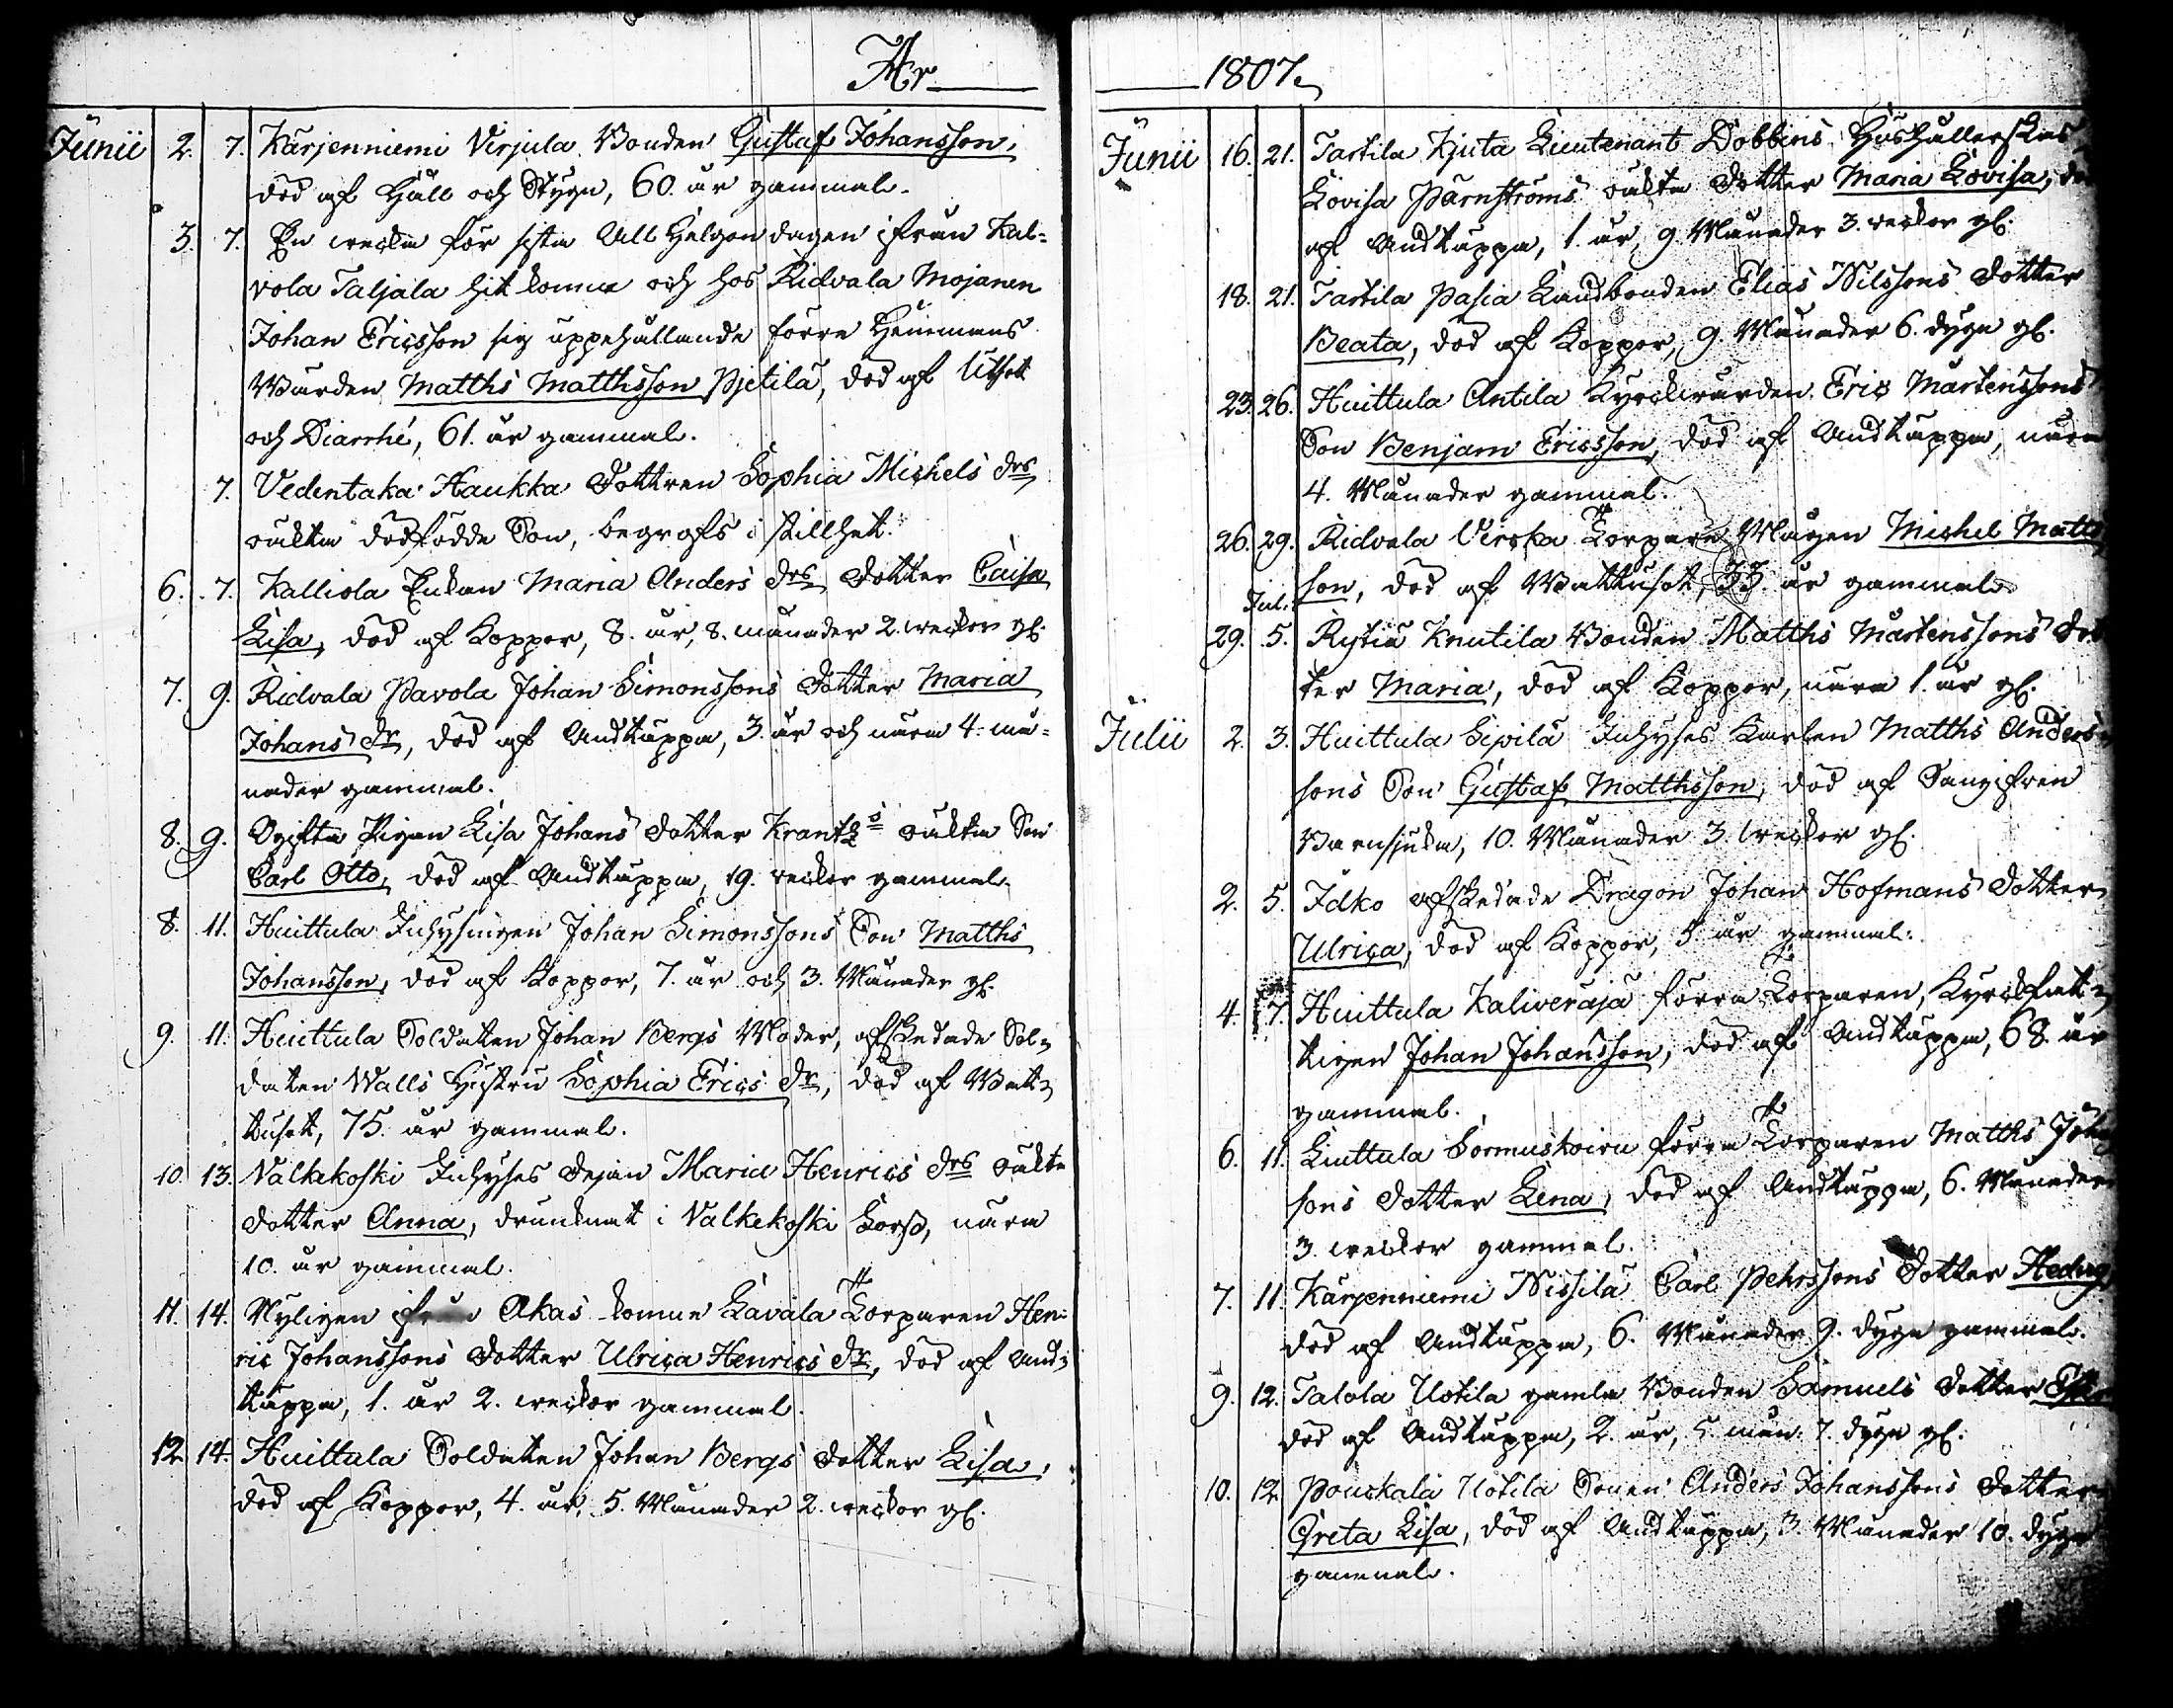 År
Junii 2. 7. Kärjenniemi Virjula Bonden Gustaf Johansson,
död af Håll och Styng, 60. år gammal.
3. 7. En wecka för sista All Helgon dagen ifrån Kal-
vola Taljala hit komne och hos Ridvala Mojanen
Johan Ericsson sig uppehållande förre Hemmans
Bonden Matths Matthsson Pjetilä, död af Utsot
och Diarrhé, 61. år gammal.
7. Vedentaka Haukka Dottren Sophia Michels drs
oäkta dödfödde Son, begrofs i stillhet.
6. 7. Kalliola Enkan Maria Anders drs Dotter Caisa
Lisa, död af Koppor, 8. år, 8. månader 2. weckor gl.
7. 9. Ridvala Pavola Johan Simonssons Dotter Maria
Johans dr, död af Andtäppa, 3. år och nära 4. må-
nader gammal.
8. 9. Ogifta Pigan Lisa Johans dotter Krantz's oäkta Son
Carl Otto, död af Andtäppa, 19. weckor gammal.
8. 11. Huittula Inhysingen Johan Simonssons Son Matths
Johansson, död af Koppor, 7. år och 3. Månader gl.
9. 11. Huittula Soldaten Johan Bergs Moder, afskedade Sol-
daten Walls Hustru Sophia Erics dr, död af Wat-
tusot, 75. år gammal.
10. 13. Valkekoski Inhyses Dejan Maria Henrics drs oäkta
dotter Anna, drunknat i Valkekoski Fors, nära
10. år gammal.
11. 14. Nyligen ifrån Akas komne Lavala Torparen Hen-
ric Johanssons dotter Ulrica Henrics dr, död af And-
täppa, 1. år 2. weckor gammal.
12. 14. Huittula Soldaten Johan Bergs dotter Lisa,
död af Koppor, 4. år, 5. Månader 2. weckor gl.
1807.
Junii 16. 21. Tarttila Kjuta Lieutenant Dobbins Hushållerskas
Lovisa Pärnströms oäkta dotter Maria Lovisa,
af Andtäppa, 1. år, 9. Månader 3. weckor gl.
18. 21. Tarttila Pasia Landbonden Elias Nilssons dotter
Beata, död af Koppor, 9. Månader 6. dygn gl.
23. 26. Huittula Antila Kyrckwärden Eric Mårtenssons
Son Benjam Ericsson, död af Andtäppa, nära
4. Månader gammal.
26. 29. Ridvala Verska Torpare Mågen Michel Matts
son, död af Wattusot, 33. år gammal.
Jul.
29. 5. Rytiä Knutila Bonden Matths Mårtenssons dot
ter Maria, död af Koppor, nära 1. år gl.
Julii 2. 3. Huittula Sipilä Inhyses Karlen Matths Anders-
sons Son Gustaf Matthsson, död af Langifven
Barnsjuka, 10. Månader 3. weckor gl.
2. 5. Idko afskedade Dragon Johan Hofmans Dotter
Ulrica, död af Koppor, 5. år gammal.
4. 7. Huittula Kaliveräjä förra Torparen, Kyrckfat-
tigen Johan Johansson, död af Andtäppa, 68. år
gammal.
6. 11. Liuttula Sormuskoiru förra Torparen Matths
sons dotter Lena, död af Andtäppa, 6. Månader
3. weckor gammal.
7. 11. Kärjenniemi Nissilä Carl Pehrssons Dotter Hedvig
död af Andtäppa, 6. Månader 9. dygn gammal.
9. 12. Talola Uotila gamla Bonden Samuels dotter
död af Andtäppa, 2. år, 5. mån. 7. dygn gl.
10. 12. Pouskala Uotila Sonen Anders Johanssons dotter
Greta Lisa, död af Andtäppa, 3. Månader 10. dygn
gammal.